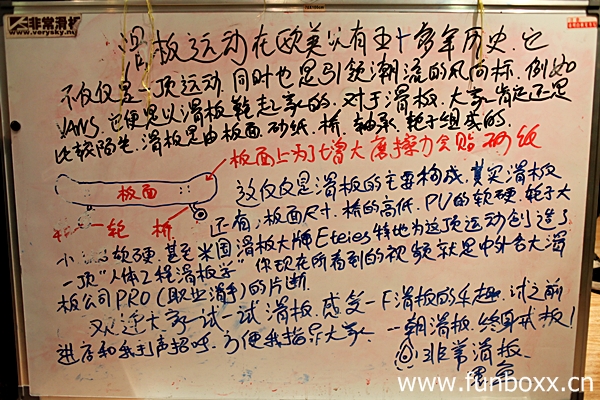 非常滑板
www.verysky.net
滑板运动在欧美以有五十多年历史.它
不仅仅是一项运动.同时也是引领潮流的风向标.例如
VANS.它便是以滑板鞋起家的.对于滑板.大家肯定还是
比较陌生.滑板是由板面.砂纸.桥.轴承.轮子组成的.
板面上为了增大磨擦力会贴砂纸
板面
轮 桥
这仅仅是滑板的主要构成.其实滑板
还有:板面尺寸.桥的高低.PU的软硬.轮子大
小 软硬.甚至米国滑板大牌Eteies特地为这项运动创造了
一项"人体工程滑板学" 你现在所看到的视频就是中外各大滑
板公司PRO(职业滑手)的片断.
欢迎大家试一试滑板.感受一下滑板的乐趣.试之前
进店和我们声招呼.方便我指导大家. 一朝滑板.终身戒板!
非常滑板.
www.funboxx.cn